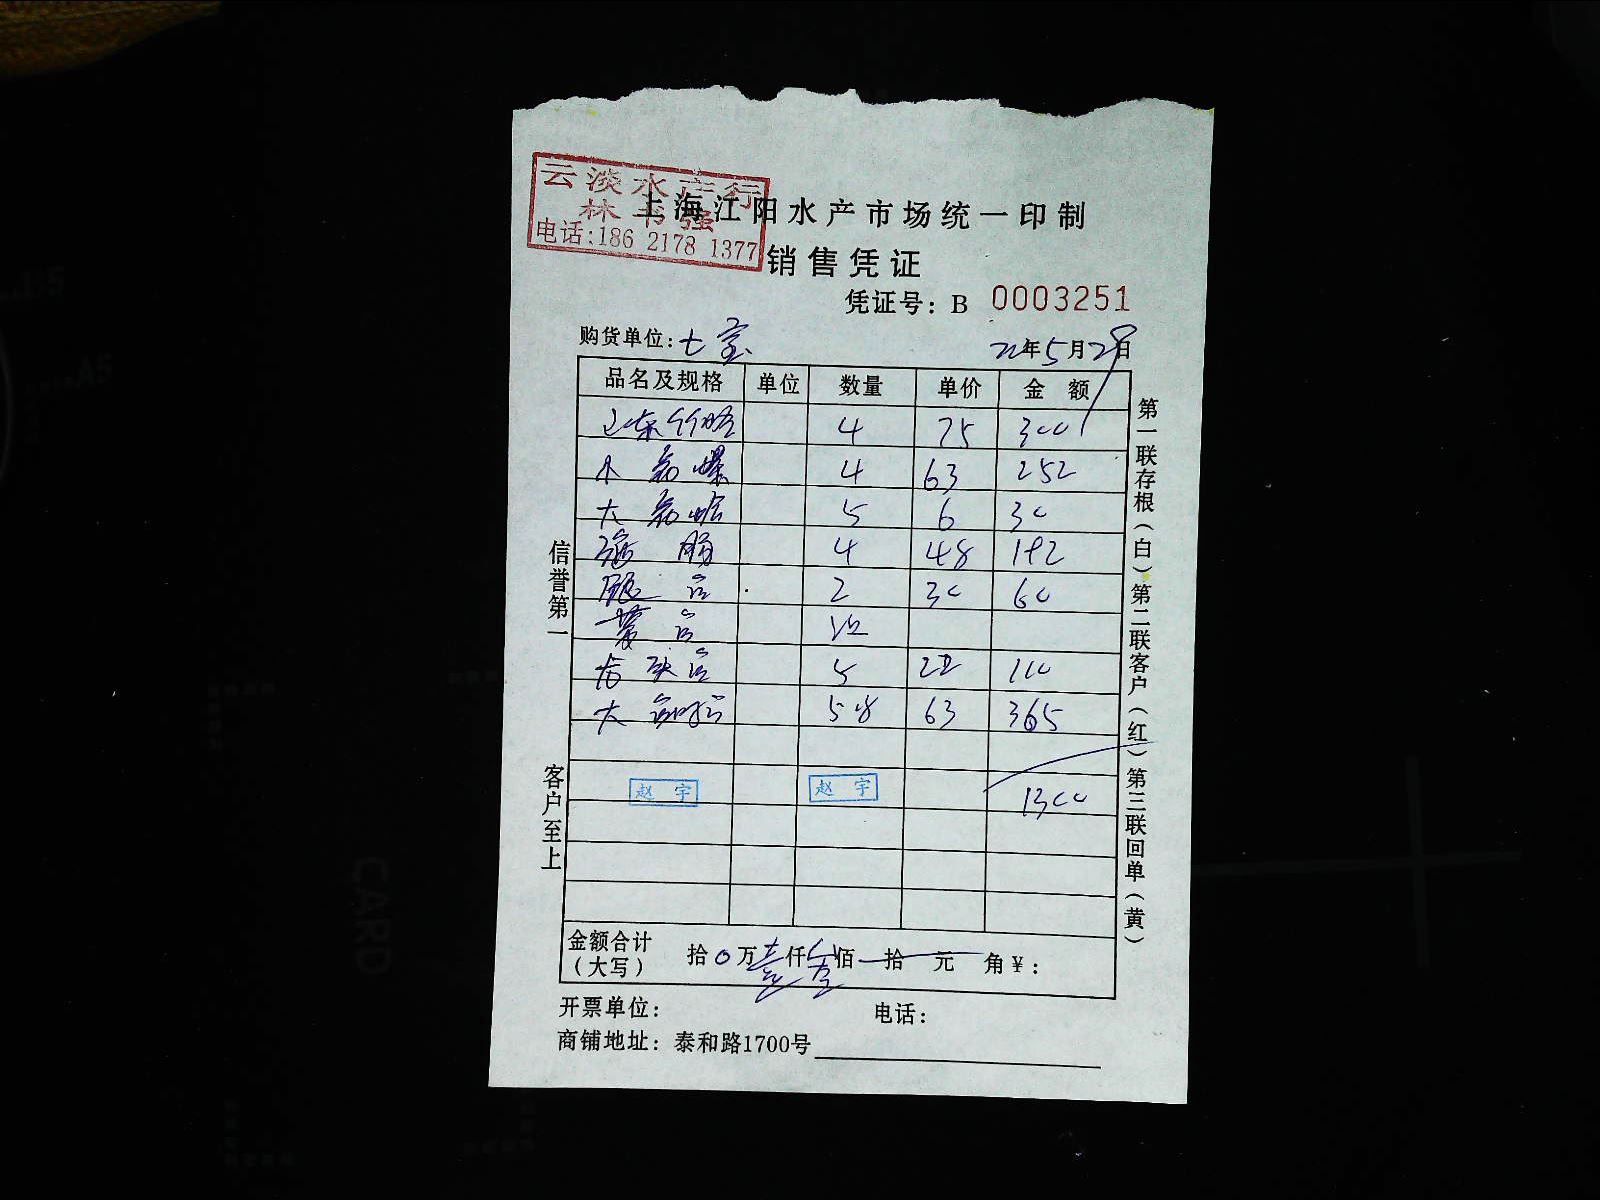 云淡水产行
林书强
电话:186 2178 1377
上海江阳水产市场统一印制
销售凭证
凭证号：B 0003251
购货单位：七宝 22年5月29日
品名及规格 单位 数量 单价 金 额
山东 4 75 300
小 4 63 252
大 5 6 30
4 48 192
2 30 60
5 22 110
大 58 63 365
赵 宇 赵 宇 1300
金额合计（大写） 拾0万壹仟叁佰 拾 元 角¥：
开票单位： 电话：
商铺地址：泰和路1700号
信誉第一 客户至上
第一联存根（白）第二联客户（红）第三联回单（黄）